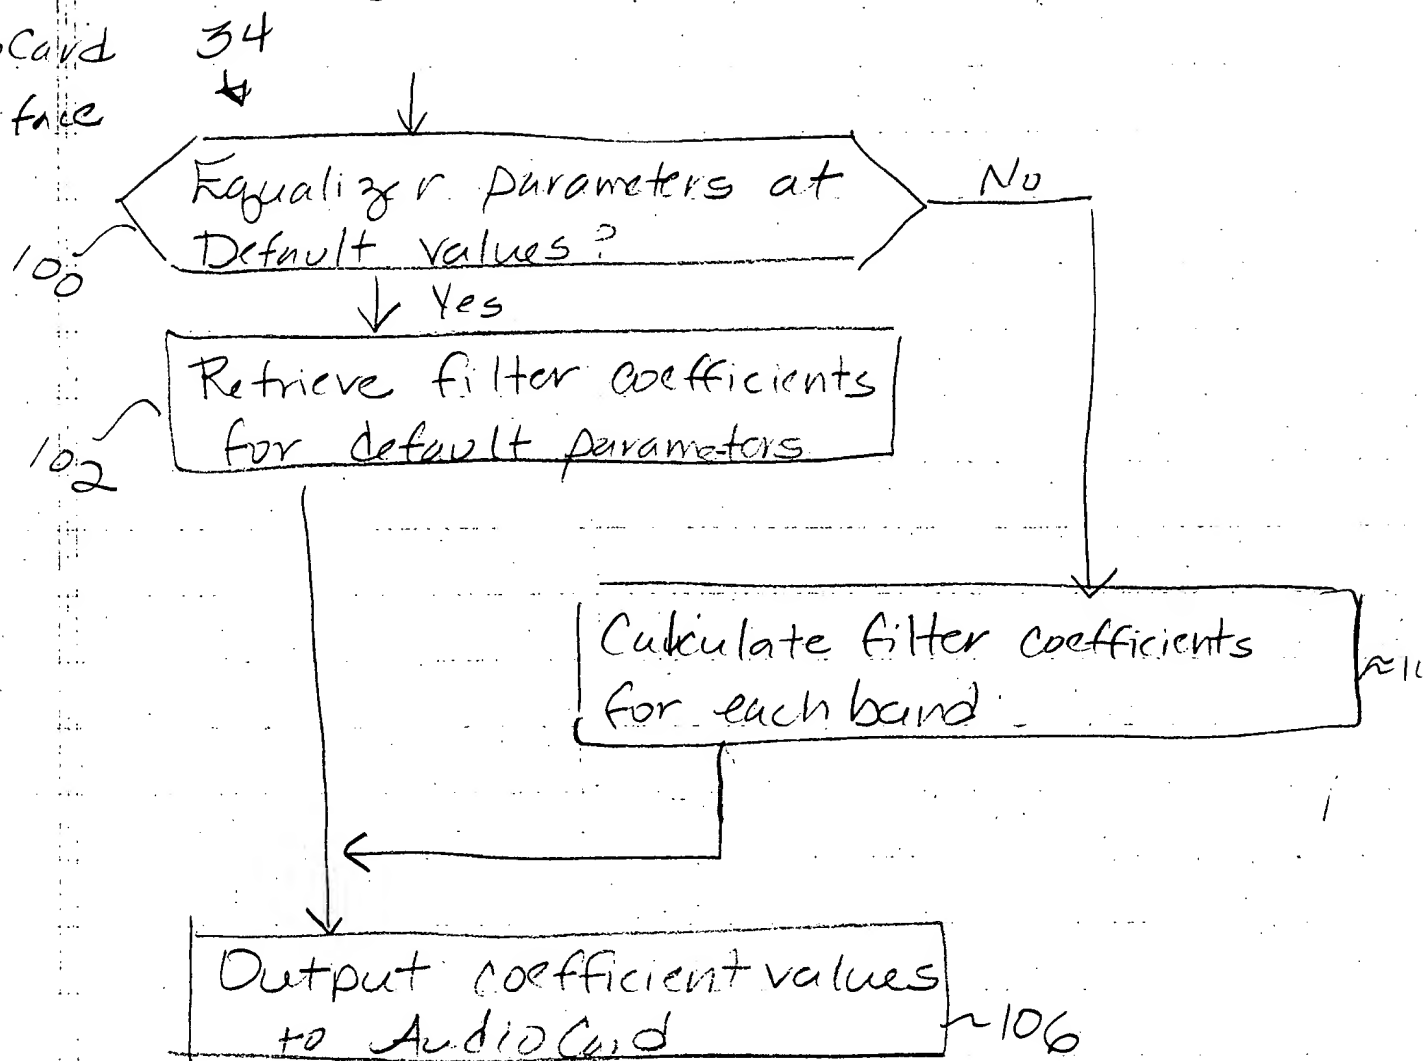 Card 34
face
Equalizer parameters at
Default values?
No
100
Yes
Retrieve filter coefficients
for default parameters
102
Calculate filter coefficients
for each band
Output coefficient values
to Audio Card
~106